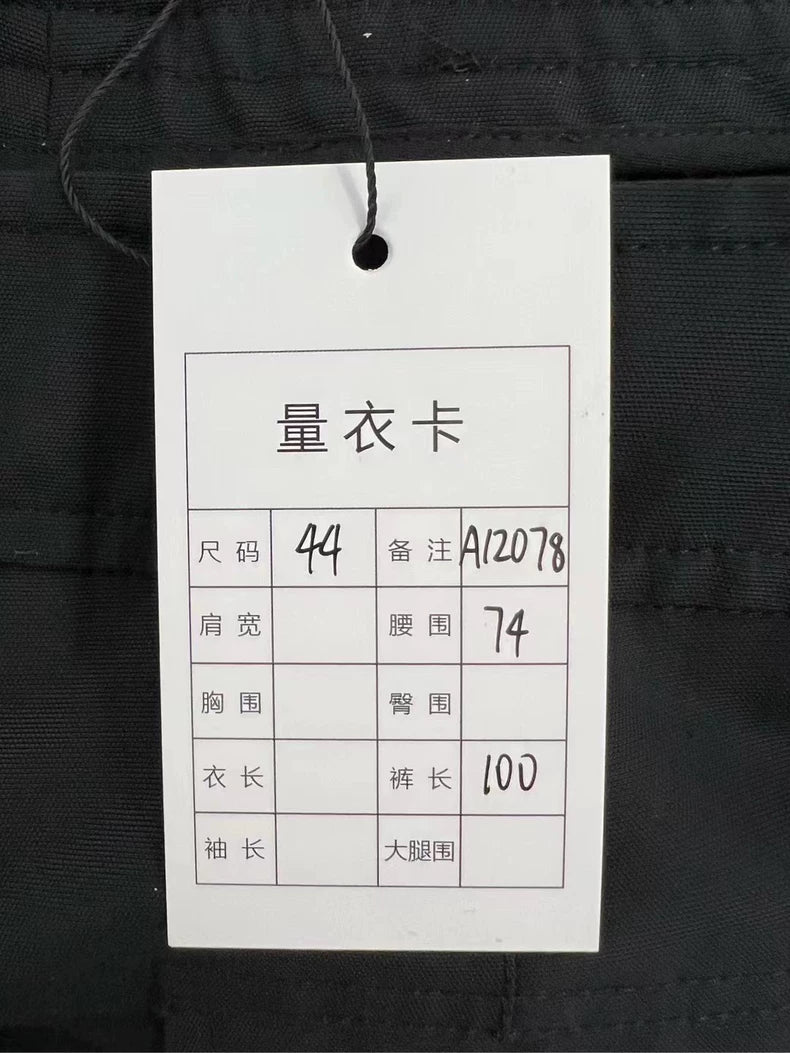 量衣卡
尺码 44 备注 A12078
肩宽 腰围 74
胸围 臀围
衣长 裤长 100
袖长 大腿围